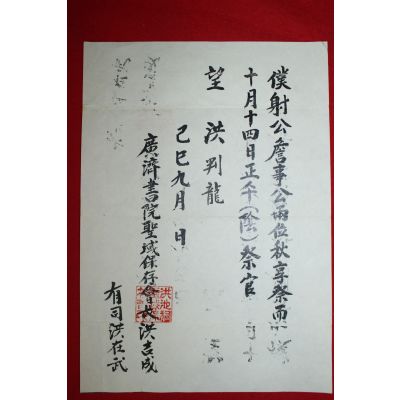 僕射公詹事公兩位秋享祭而
十月十四日正午(陰)祭官
望 洪判龍
己巳九月 日
廣濟書院聖域保存會長洪吉成
有司洪在武